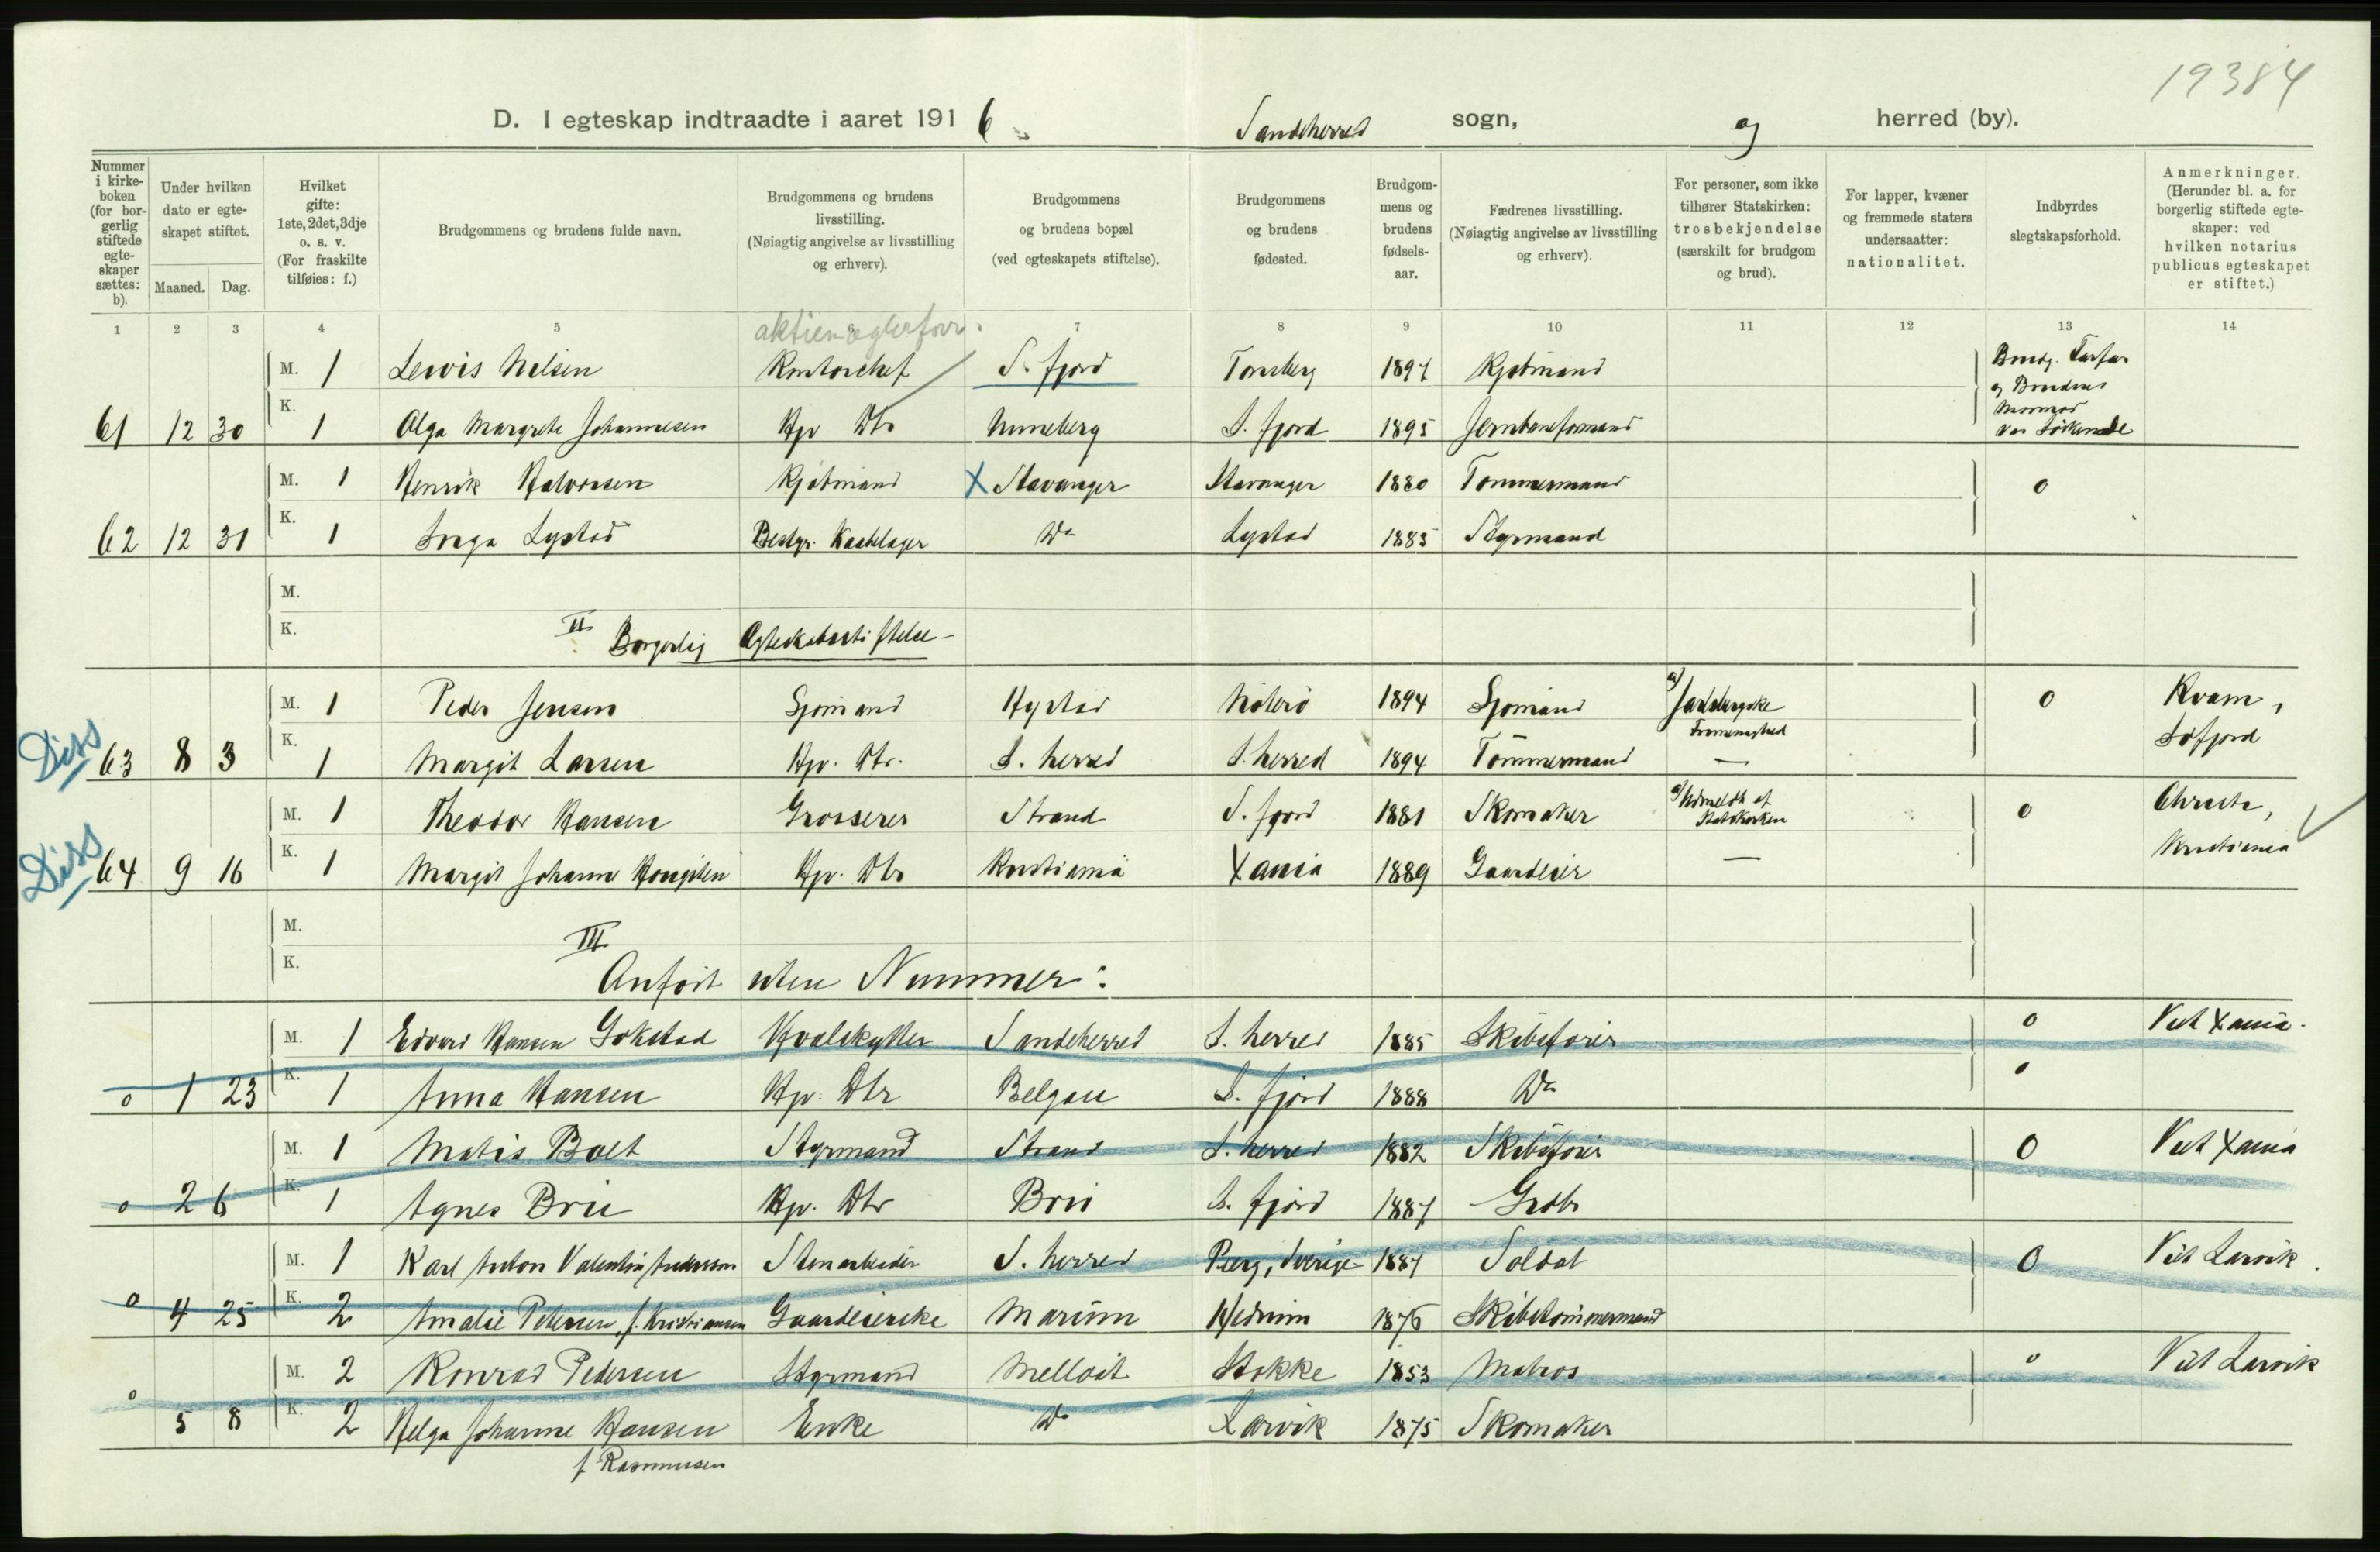 19384
D. I egteskap indtraadte i aaret 1916 Sandeherred sogn, og herred (by).
Nummer i kirkeboken (for borgerlig stiftede egteskaper sættes: b).
Under hvilken dato er egteskapet stiftet.
Maaned. Dag.
Hvilket gifte: 1ste, 2det, 3dje o. s. v. (For fraskilte tilføies: f.)
Brudgommens og brudens fulde navn.
Brudgommens og brudens livsstilling. (Nøiagtig angivelse av livsstilling og erhverv).
Brudgommens og brudens bopæl (ved egteskapets stiftelse).
Brudgommens og brudens fødested.
Brudgommens og brudens fødselsaar.
Fædrenes livsstilling. (Nøiagtig angivelse av livsstilling og erhverv).
For personer, som ikke tilhører Statskirken: trosbekjendelse (særskilt for brudgom og brud).
For lapper, kvæner og fremmede staters undersaatter: nationalitet.
Indbyrdes slegtskapsforhold.
Anmerkninger. (Herunder bl. a. for borgerlig stiftede egteskaper: ved hvilken notarius publicus egteskapet er stiftet.)
1 2 3 4 5 6 7 8 9 10 11 12 13 14
M. 1 Lewis Nilsen Kontorchef S. fjord Tønsberg 1897 Kjøbmand Brudg. Farfar og Brudens Mormor var Søskende
61 12 30 K. 1 Olga Margrete Johannesen Hjv Dtr Unneberg S. fjord 1895 Jernbaneformand
M. 1 Henrik Halvorsen Kjøbmand X Stavanger Stavanger 1880 Tømmermand 0
62 12 31 K. 1 Inga Lystad Bestyr. Do Lystad 1885 Styrmand
M.
K. II Borgerlig Egteskabsstiftelse
M. 1 Peder Jensen Sjømand Hystad Nøterø 1894 Sjømand a) Jarlsbergske Frimenighed 0 Kvam,
Diss 63 8 3 K. 1 Margit Larsen Hjv. Dtr. S. herred S. herred 1894 Tømmermand — Søfjord
M. 1 Theodor Hansen Grosserer Strand S. fjord 1881 Skomaker a) Udmeldt af Statskirken 0
Diss 64 9 16 K. 1 Margit Johanne Hjv. Dtr Kristiania Xania 1889 Gaardeier — Kristiania
M. III
K. Anført uten Nummer:
M. 1 Edvard Hansen Gokstad Hvalskytter Sandeherred S. herred 1885 Skibsfører 0 Viet Xania.
0 1 23 K. 1 Anna Hansen Hjv. Dtr Belgau S. fjord 1888 Do 0
M. 1 Matis Bolt Styrmand Strand S. herred 1882 Skibsfører 0 Viet Xania
0 2 6 K. 1 Agnes Bru Hjv. Dtr S. fjord 1887 Grdbr
M. 1 Karl Anton Valentin Andersson Stenarbeider S. herred Sverige 1887 Soldat 0 Viet Larvik.
0 4 25 K. 2 Amalie Petersen, f. Kristiansen Gaardeierske Marum Hedrum 1876 Skibstømmermand
M. 2 Konrad Pedersen Styrmand Melløst Stokke 1853 Matros 0 Viet Larvik
0 5 8 K. 2 Helga Johanne Hansen Enke Do Larvik 1875 Skomaker
f Rasmussen